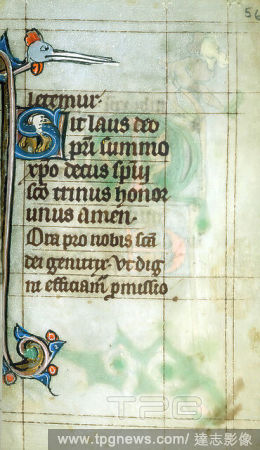 56
letemur.
Sit laus deo
pri summo
xpo decus spui
sco trinus honor
unus amen.
Ora pro nobis sca
dei genitrix. Ut dig
ni efficiam pmissio
TPG
www.tpgnews.com/達志影像